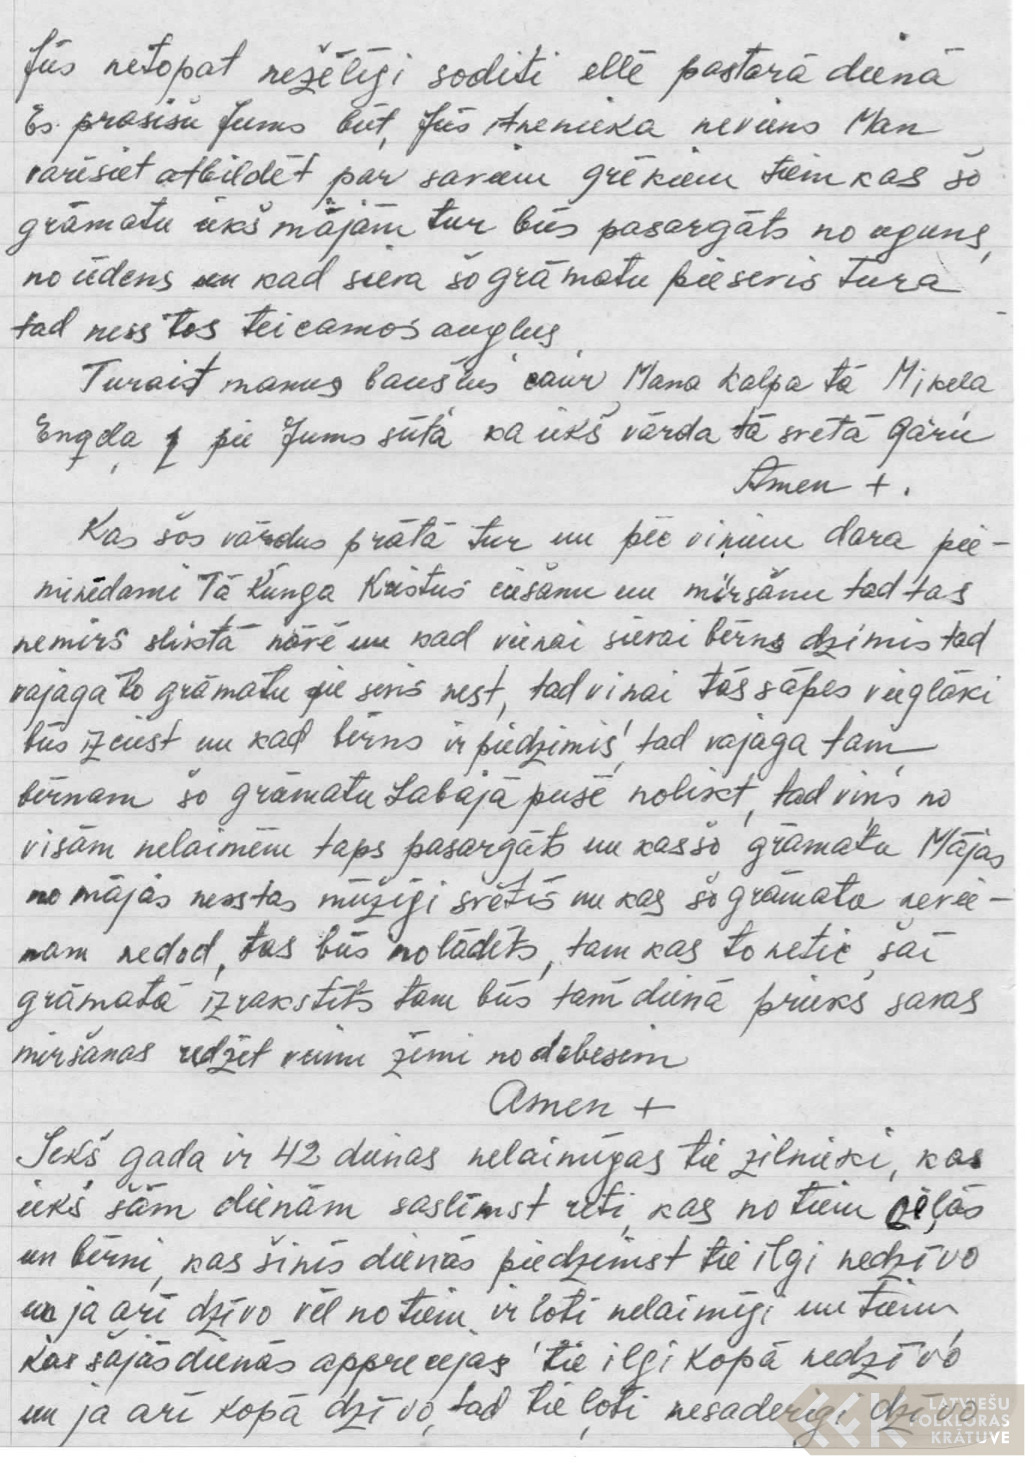 Jūs netopat nežēlīgi soditi ellē pastarā dienā
Es prasīšu Jums būt, Jūs Anenieka neviens Man
varēsiet atbildēt par saviem grēkiem tiem kas šo
grāmatu iekš mājām tur būs pasargāts no uguns,
no ūdens un kad sieva šo grāmatu pie sevis tura
tad ness tos teicamos auglus
Turait manus baušlus caur Mana Kalpa tā Miķela
Engela pie Jums sūtā ka iekš vārda tā svetā Garu
Amen +.
Kas šos vārdus prātā tur un pēc viņiem dara pie-
minēdami Tā Kunga Kristus ciešanu un miršanu tad tas
nemirs sliktā nāvē un kad vienai sievai bērns dzimis tad
vajaga to grāmatu pie sevis nest, tad vinai tās sāpes vieglāki
būs izciest un kad bērns ir piedzimis, tad vajaga tam
bērnam šo grāmatu Labajā pusē nolikt, tad vins no
visām nelaimēm taps pasargāts un kas šo grāmatu Mājas
no mājās ness tas mūžīgi svētīs un kas šo grāmatu nevie-
nam nedod, tas būs nolādēts, tam kas to netic šai
grāmatā izrakstīts tam būs tam dienā priekš savas
miršanas redžēt vienu zīmi no debesim
Amen +
Iekš gada ir 42 dienas nelaimīgas tie zilnieki, kas
iekš šām dienām saslimst reti, kas no tiem ceļās
un bērni, kas šinīs dienās piedzimst tie ilgi nedzīvo
un ja arī dzīvo vēl no tiem ir loti nelaimīgi un tiem
kas šajās dienās apprecejas tie ilgi Kopā nedzīvo
un ja arī kopā dzīvo, tad tie ļoti nesaderīgi dzīvo
LATVIEŠU
FOLKLORAS
KRĀTUVE